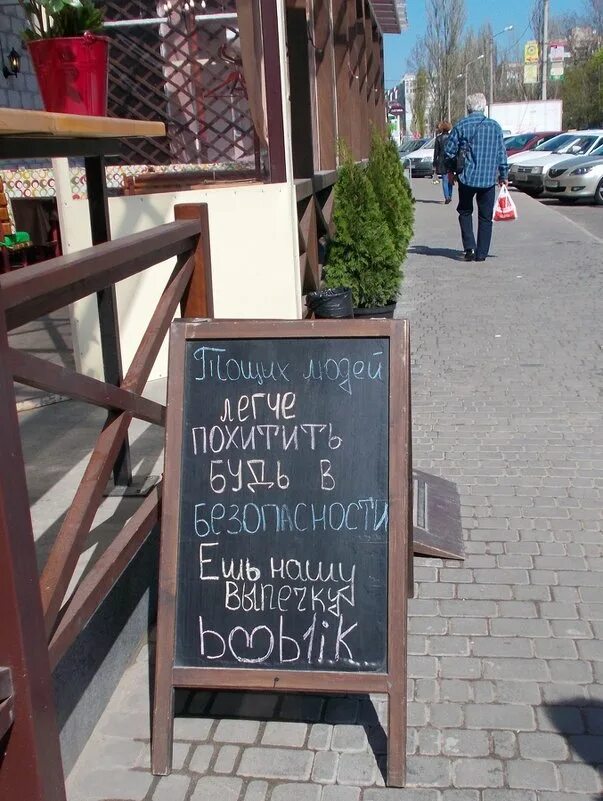 Тощих людей
легче
похитить
будь в
безопасности
Ешь нашу
выпечку
boblik